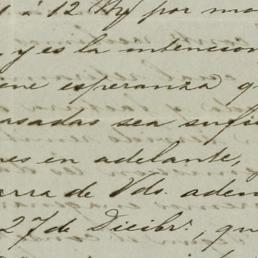 1 á 12 Rs por ma
, y es la intencion
iene esperanza q
asadas sea sufi
es en adelante,
erra de Vds. adem
27 de Dicibr.ͤ, qu